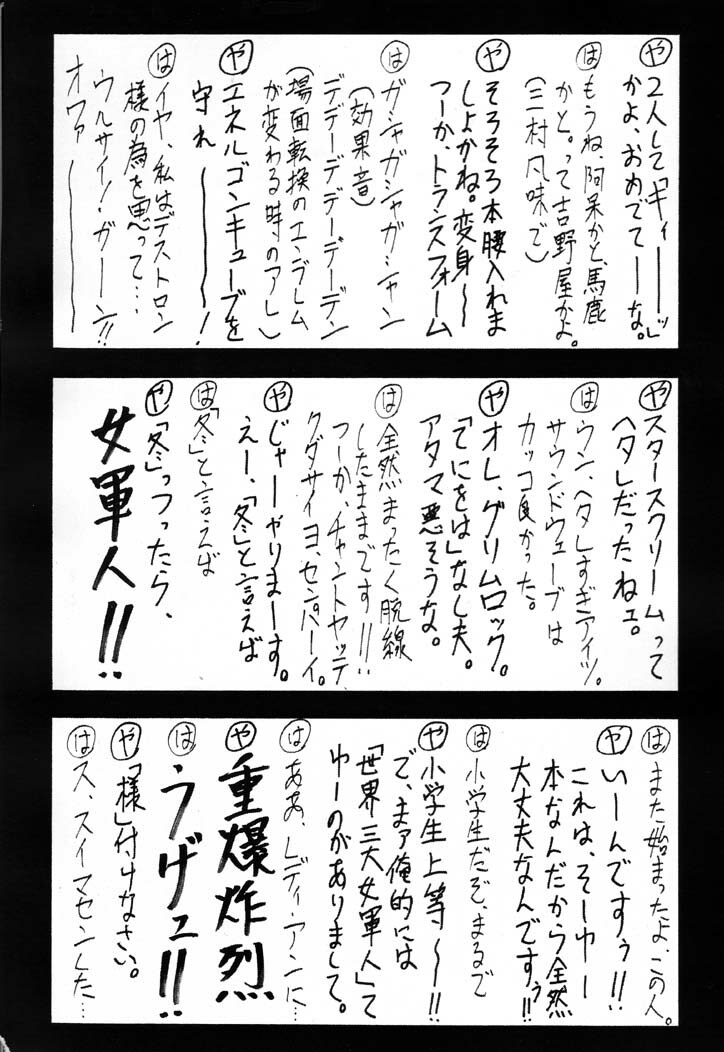 や 2人して「ギィーーッ」
かよ、おめでてーーな。
は もうね、阿呆かと、馬鹿
かと。って吉野屋かよ。
(三村風味で)
や そろそろ本腰入れま
しよかね。変身〜
つーか、トランスフォーム
は ガシャガシャガシャン
(効果音)
デデーデデデーデーデン
(場面転換のエンブレム
が変わる時のアレ)
や エネルゴンキューブを
守れ————!
は イヤ、私はデストロン
様の為を思って…
ウルサイ!・ガーン!!
オワァ————
や スタースクリームって
ヘタレだったねェ。
は ウン、ヘタレすぎアイツ。
サウンドウェーブは
カッコ良かった。
や オレ、グリムロック。
「てにをは」なし夫。
アタマ悪そうな。
は 全然まったく脱線
したままです!!!
つーか、チャントヤッテ
クダサイヨ、センパーイ。
や じゃーやりまーす。
えー、「冬」と言えば
は 「冬」と言えば
や 「冬」っつったら、
女軍人!!
は また始まったよ、この人。
や いーんですぅ!!
これは、そーゆー
本なんだから全然
大丈夫なんですぅ!!
は 小学生だぞ、まるで
や 小学生上等〜!!
で、まァ俺的には
「世界三大女軍人」て
ゆーのがありまして。
は ああ、レディ・アンに…
や 重爆炸烈
は うげェ!!
や 「様」付けなさい。
は ス、スイマセンした…